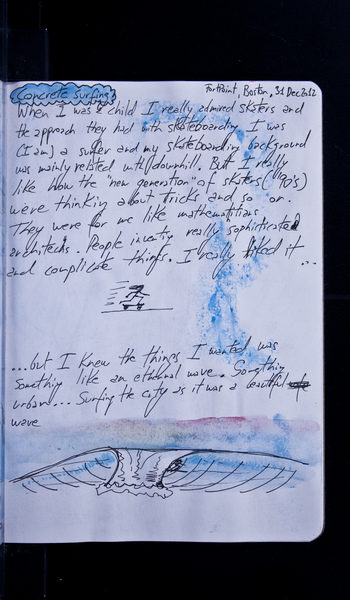 Concrete Surfing
FortPoint, Boston, 31 Dec 2012
When I was a child I really admired skaters and
the approach they had with skateboarding. I was
(I am) a surfer and my skateboarding background
was mainly related with downhill. But I really
like how the "new generation" of skaters (90's)
were thinking about tricks and so on.
They were for me like mathematitians,
architechs. People inventing really sophisticated
and complicate things. I really liked it ...
...but I knew the things I wanted was
something like an ethernal wave. Something
urban... Surfing the city as it was a beautiful
wave